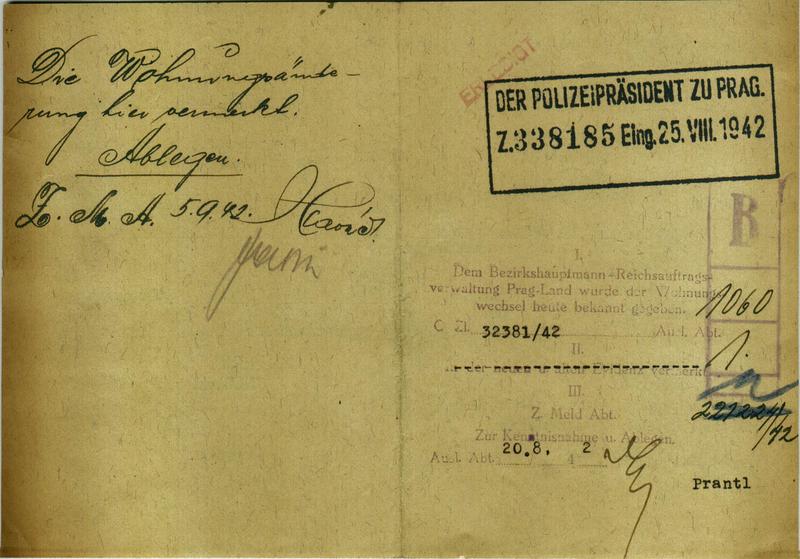 Die Wohnungsände-
rung hier vermerkt.
Ablegen.
Z. M. A. 5.9.42.
ERLEDIGT
DER POLIZEIPRÄSIDENT ZU PRAG.
Z. 338185 Eing. 25. VIII. 1942
B
I.
Dem Bezirkshauptmann-Reichsauftrags-
verwaltung Prag-Land wurde der Wohnungs-
wechsel heute bekannt gegeben.
1060
C Zl. 32381/42 Ausl. Abt.
1.
II.
in der neuen u. alten Evidenz vermerkt
III.
Z. Meld Abt.
Zur Kenntnisnahme u. Ablegen.
Ausl. Abt. 20.8. 4 2
/42
Prantl